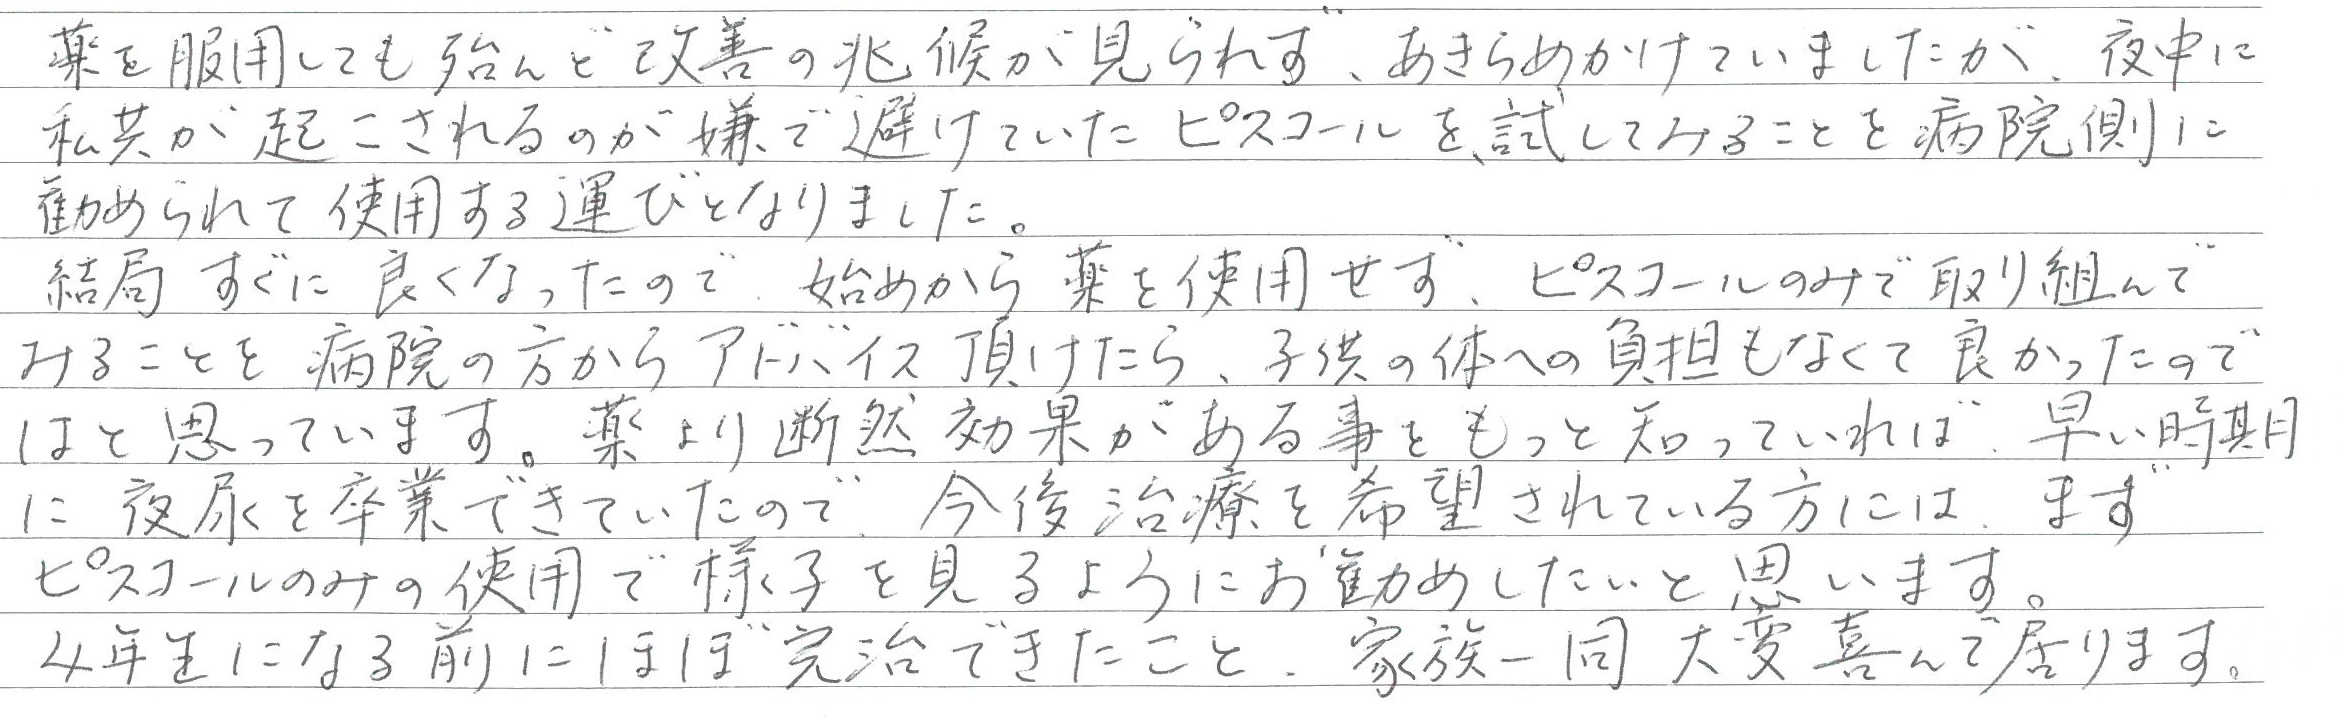 薬を服用しても殆んど改善の兆候が見られず、あきらめかけていましたが、夜中に
私共が起こされるのが嫌で避けていたピスコールを、試してみることを病院側に
勧められて使用する運びとなりました。
結局すぐに良くなったので、始めから薬を使用せず、ピスコールのみで取り組んで
みることを病院の方からアドバイス頂けたら、子供の体への負担もなくて良かったので
はと思っています。薬より断然効果がある事をもっと知っていれば、早い時期
に夜尿を卒業できていたので、今後治療を希望されている方には、まず
ピスコールのみの使用で様子を見るようにお勧めしたいと思います。
4年生になる前にほぼ完治できたこと、家族一同大変喜んで居ります。